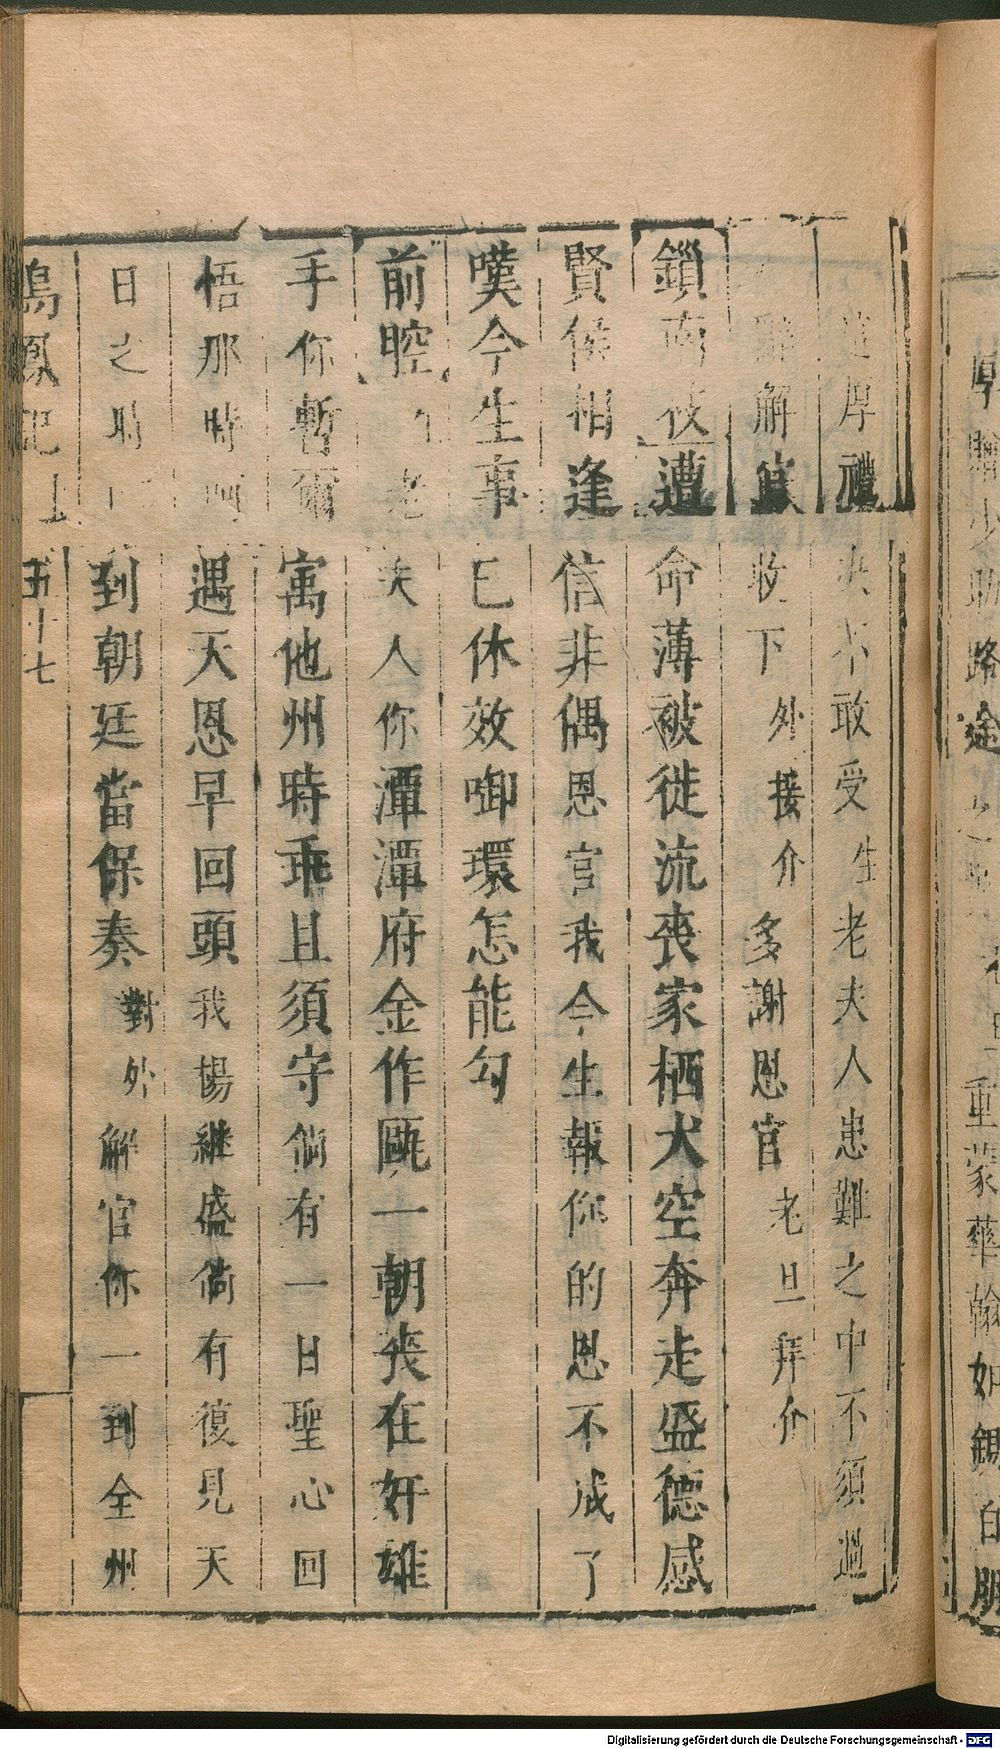 厚禮決不敢受生老夫人患難之中不須過
辭解官收下外接介多謝恩官老旦拜介
鎖南枝遭命薄被徙流喪家栖犬空奔走盛德感
賢侯相逢信非偶恩官我今生報你的恩不成了
嘆今生事已休效啣環怎能勾
前腔老夫人你潭潭府金作甌一朝喪在奸雄
手你暫爾寓他州時乖且須守倘有一日聖心回
悟那時遇天恩早回頭我楊繼盛倘有復見天
日之時到朝廷當保奏對外解官你一到全州
鳴鳳記上 五十七
厚贈少助路途
重蒙華翰如錫百朋
Digitalisierung gefördert durch die Deutsche Forschungsgemeinschaft - DFG